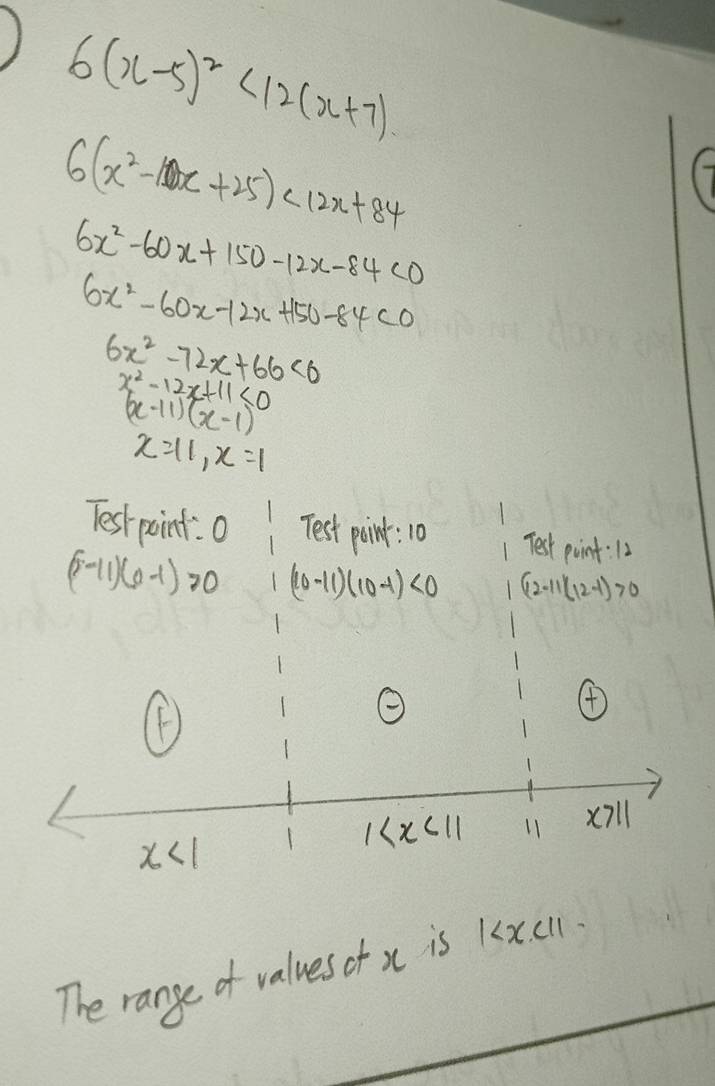 6(x-5)² <12(x+7).
6(x²-10x+25)<12x+84
6x²-60x+150-12x-84<0
6x²-60x-12x+150-84<0
6x²-72x+66<0
x²-12x+11<0
(x-11)(x-1)
x=11, x=1
Test point: 0
(0-11)(0-1)>0
Test point: 10
(10-11)(10-1)<0
Test point: 12
(12-11)(12-1)>0
+ - +
x<1 1 1<x<11 11 x>11
The range of values of x is 1<x<11.